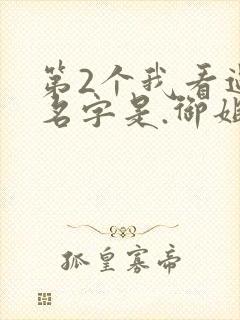 第2个我看过
名字是.御姐
狐皇寡帝